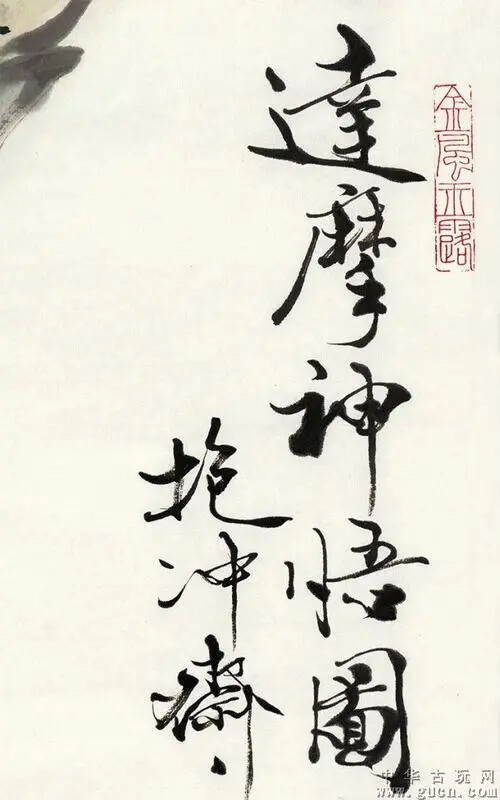 達摩神悟圖
抱冲齋、
金風玉露
中华古玩网
www.gucn.com